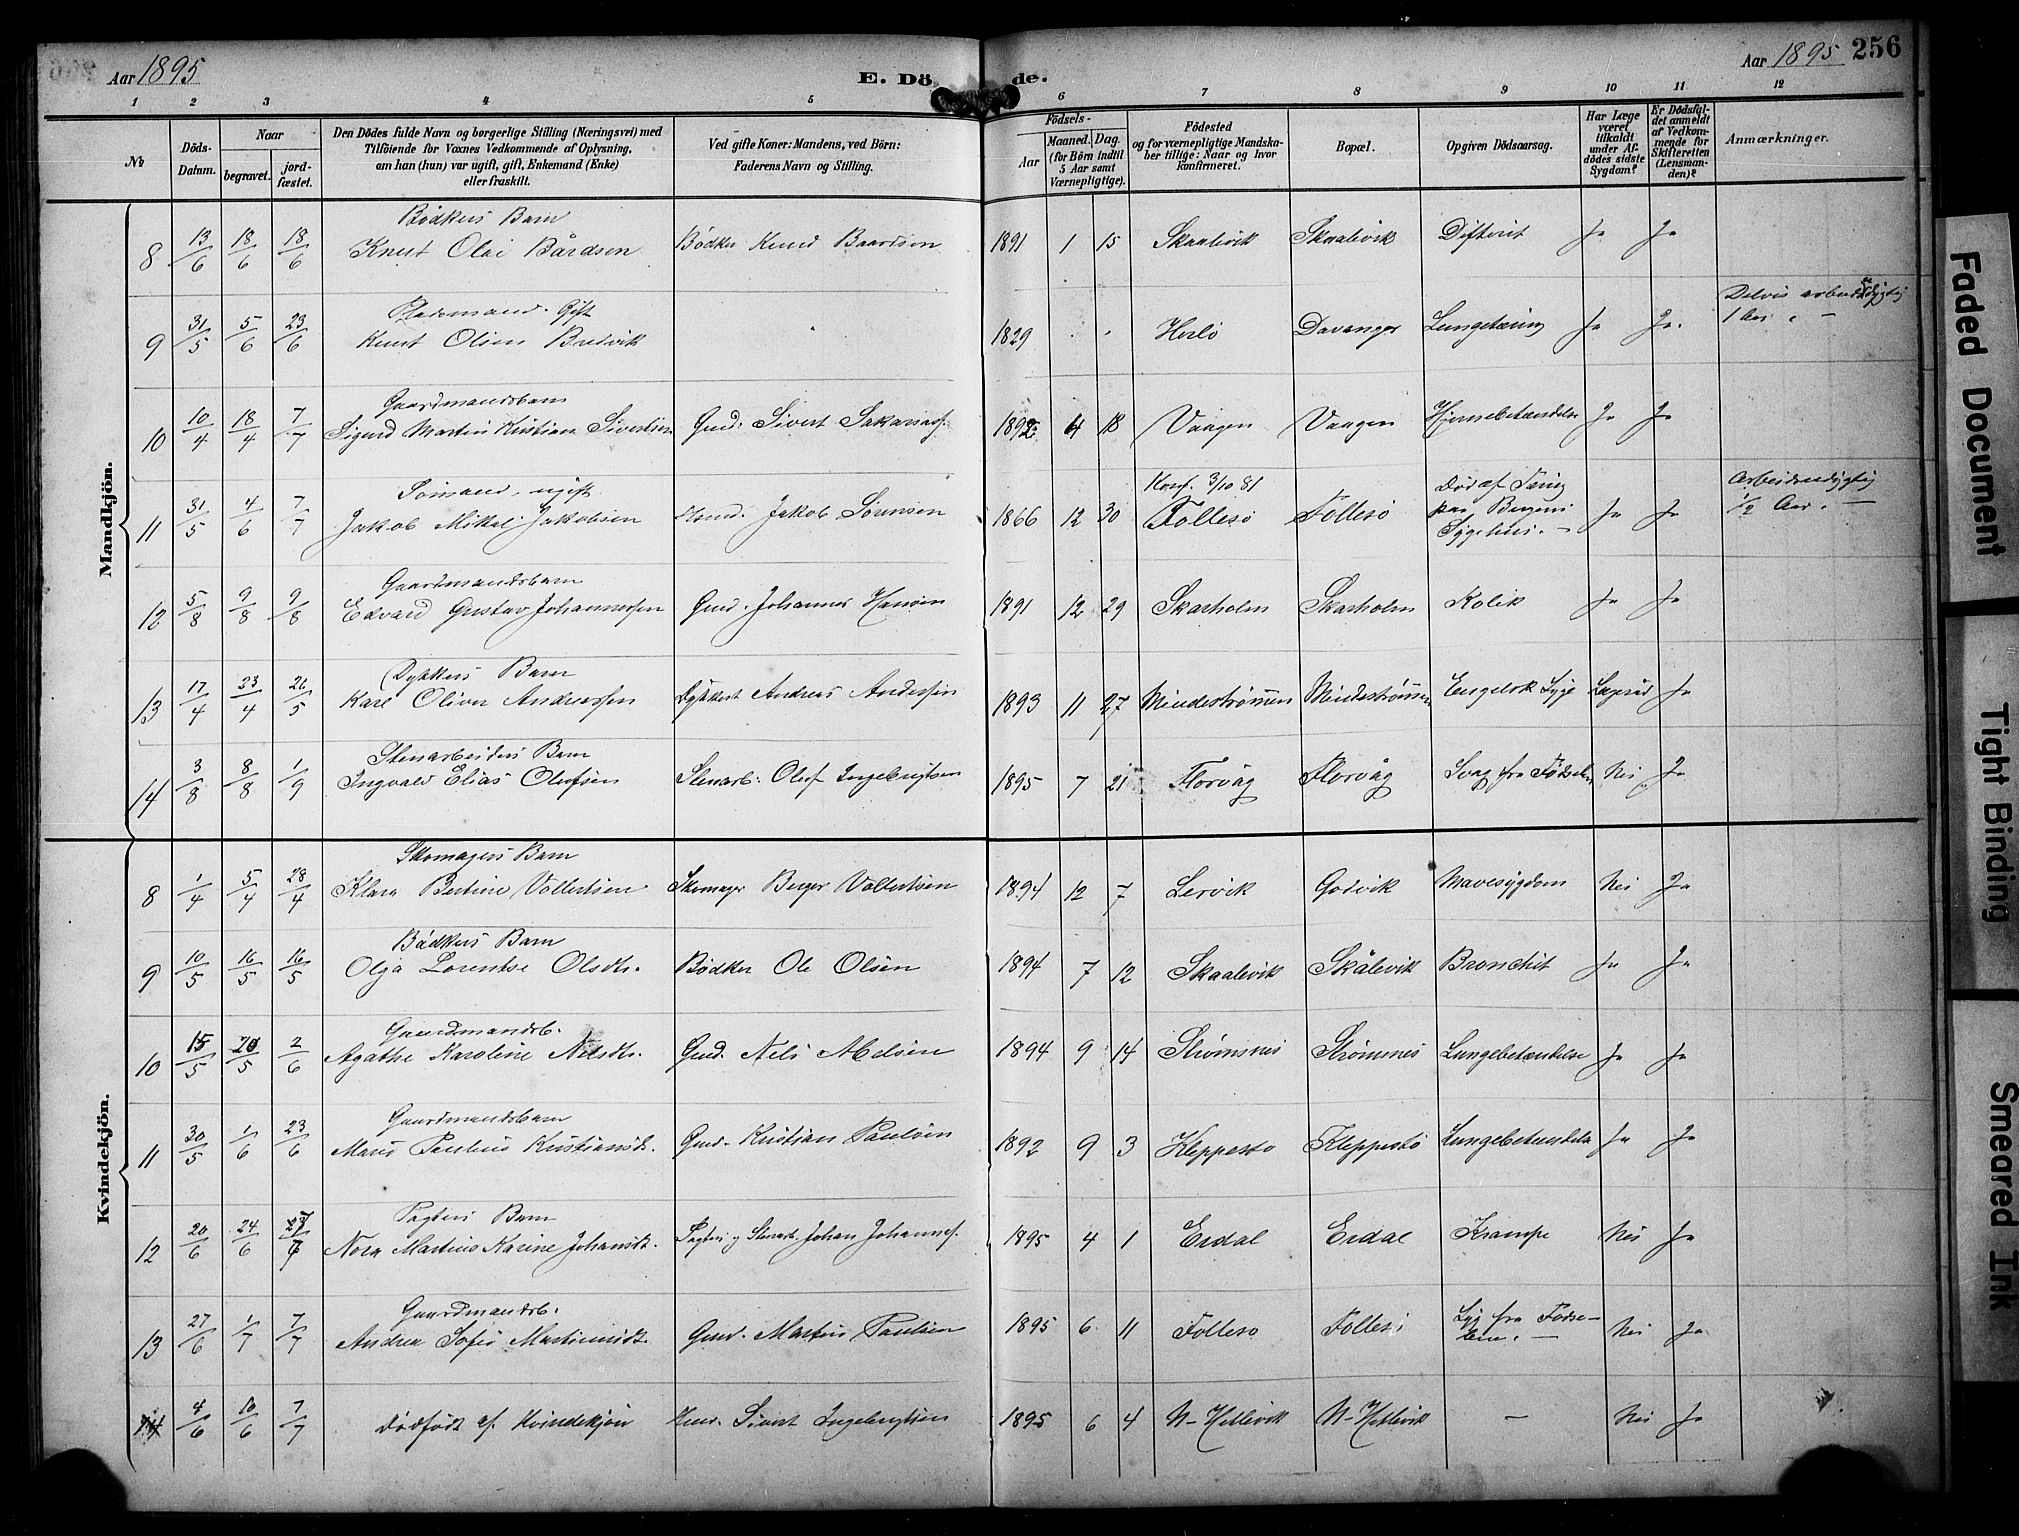 Aar 1895
E. Dö de.
Aar 1895 256
1 2 3 4 5 6 7 8 9 10 11 12
No
Döds-Datum.
Naar
begravet.
jord-fæstet.
Den Dödes fulde Navn og borgerlige Stilling (Næringsvei) med
Tilföiende for Voxnes Vedkommende af Oplysning,
om han (hun) var ugift, gift, Enkemand (Enke)
eller fraskilt.
Ved gifte Koner: Mandens, ved Börn:
Faderens Navn og Stilling.
Födsels-
Aar
Maaned. Dag.
(for Börn indtil
5 Aar samt
Værnepligtige).
Födested
og for værnepligtige Mandska-
ber tillige: Naar og hvor
konfirmeret.
Bopæl.
Opgiven Dödsaarsag.
Har Læge
været
tilkaldt
under Af-
dödes sidste
Sygdom?
Er Dödsfal-
det anmeldt
af Vedkom-
mende for
Skifteretten
(Lensman-
den)?
Anmærkninger.
Mandkjön.
Bødkers Barn
8 13/6 18/6 18/6 Knut Olai Bårdsen Bødker Knud Baardsen 1891 1 15 Skaalevik Skaalevik Difterit Ja Ja
Pladsmand. Gift
9 31/5 5/6 23/6 Knut Olsen Bredvik 1829 Herlø Davanger Lungetæring Ja Ja. Delvis arbeidsdygtig
1 Aar
Gaardmandsbarn
10 10/4 18/4 7/7 Sigurd Martin Kristian Sivertsen Gmd. Sivert Sakariass. 4 18 Vaagen Vaagen Hjernebetændelse Ja Ja
Sømand, ugift.
11 31/5 4/6 7/7 Jakob Mikal Jakobsen Jakob Sørensen 1866 12 30 Konf. 3/10 81
Follesø Follesø Død af Tæring
paa Bergens
Sygehus. Ja Ja Arbeidsudygtig
1/2 Aar.
Gaardmandsbarn
12 5/8 9/8 9/8 Edvard Gustav Johannessen Gmd. Johannes Hansen 1891 12 29 Skarholm Skarholm Kolik Ja Ja
Dykkers Barn
13 17/4 23/4 26/5 Karl Oliver Andreassen Dykker Andreas Anderssen 1893 11 27 Mindestrømmen Mindestrømmen Engelsk Syge Lægeråd Ja
Stenarbeiders Barn
14 3/8 8/8 1/9 Ingvald Elias Olafsen Stenarb. Olaf Ingebrigtsen 1895 7 21 Florvåg Florvåg Svag fra Fødselen Nei Ja
Kvindekjön.
Skomagers Barn
8 1/4 5/4 28/4 Klara Bertine Vollertsen Skomager Berger Vollertsen 1894 12 7 Lervik Godvik Mavesygdom Nei Ja
Bødkers Barn
9 10/5 16/5 16/5 Olga Lorentse Olsdtr. Bødker Ole Olsen 1894 7 12 Skaalevik Skålevik Bronchit Ja Ja
Gaardmandsb.
10 15/5 20/5 2/6 Agathe Karoline Nilsdtr. Gmd. Nils Melsen 1894 9 14 Strømsnes Strømsnes Lungebetændelse Ja Ja
Gaardmandsbarn
11 30/5 1/6 23/6 Marie Pauline Kristiansdt. Gmd. Kristian Paulsen 1892 9 3 Kleppestø Kleppestø Lungebetændelse Ja Ja
Pagters Barn
12 20/6 24/6 Nora Martine Karine Johansdt. Pagter og Stenarb. Johan Johannes. 1895 4 1 Erdal Erdal Krampe Nei Ja
Gaardmandsb.
13 27/6 1/7 7/7 Andrea Sofie Martinusdt. Gmd. Martin Paulsen 1895 6 11 Follesø Follesø Syg fra Fødse-
len. Nei Ja
14 4/6 10/6 7/7 Dødfødt af Kvindekjøn Sivert Ingebrigtsen 1895 6 4 N-Hetlevik N-Hetlevik — Nei Ja
Faded Document
Tight Binding
Smeared Ink